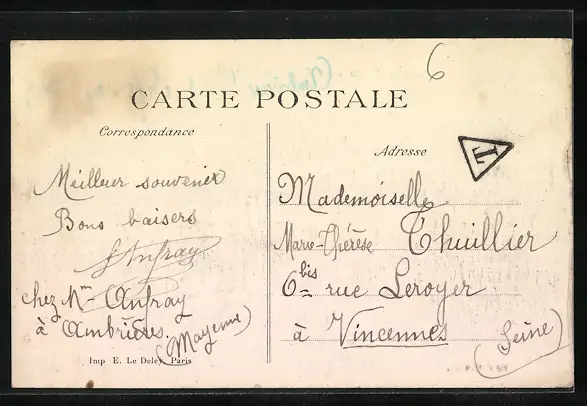 6
CARTE POSTALE
Correspondance
Adresse
T
Meilleur souvenir
Bons baisers
Anfray
chez Mm Anfray
à Ambrières.
(Mayenne)
Mademoiselle
Marie-Thérèse Thuillier
6bis rue Leroyer
à Vincennes
(Seine)
Imp E. Le Deley, Paris